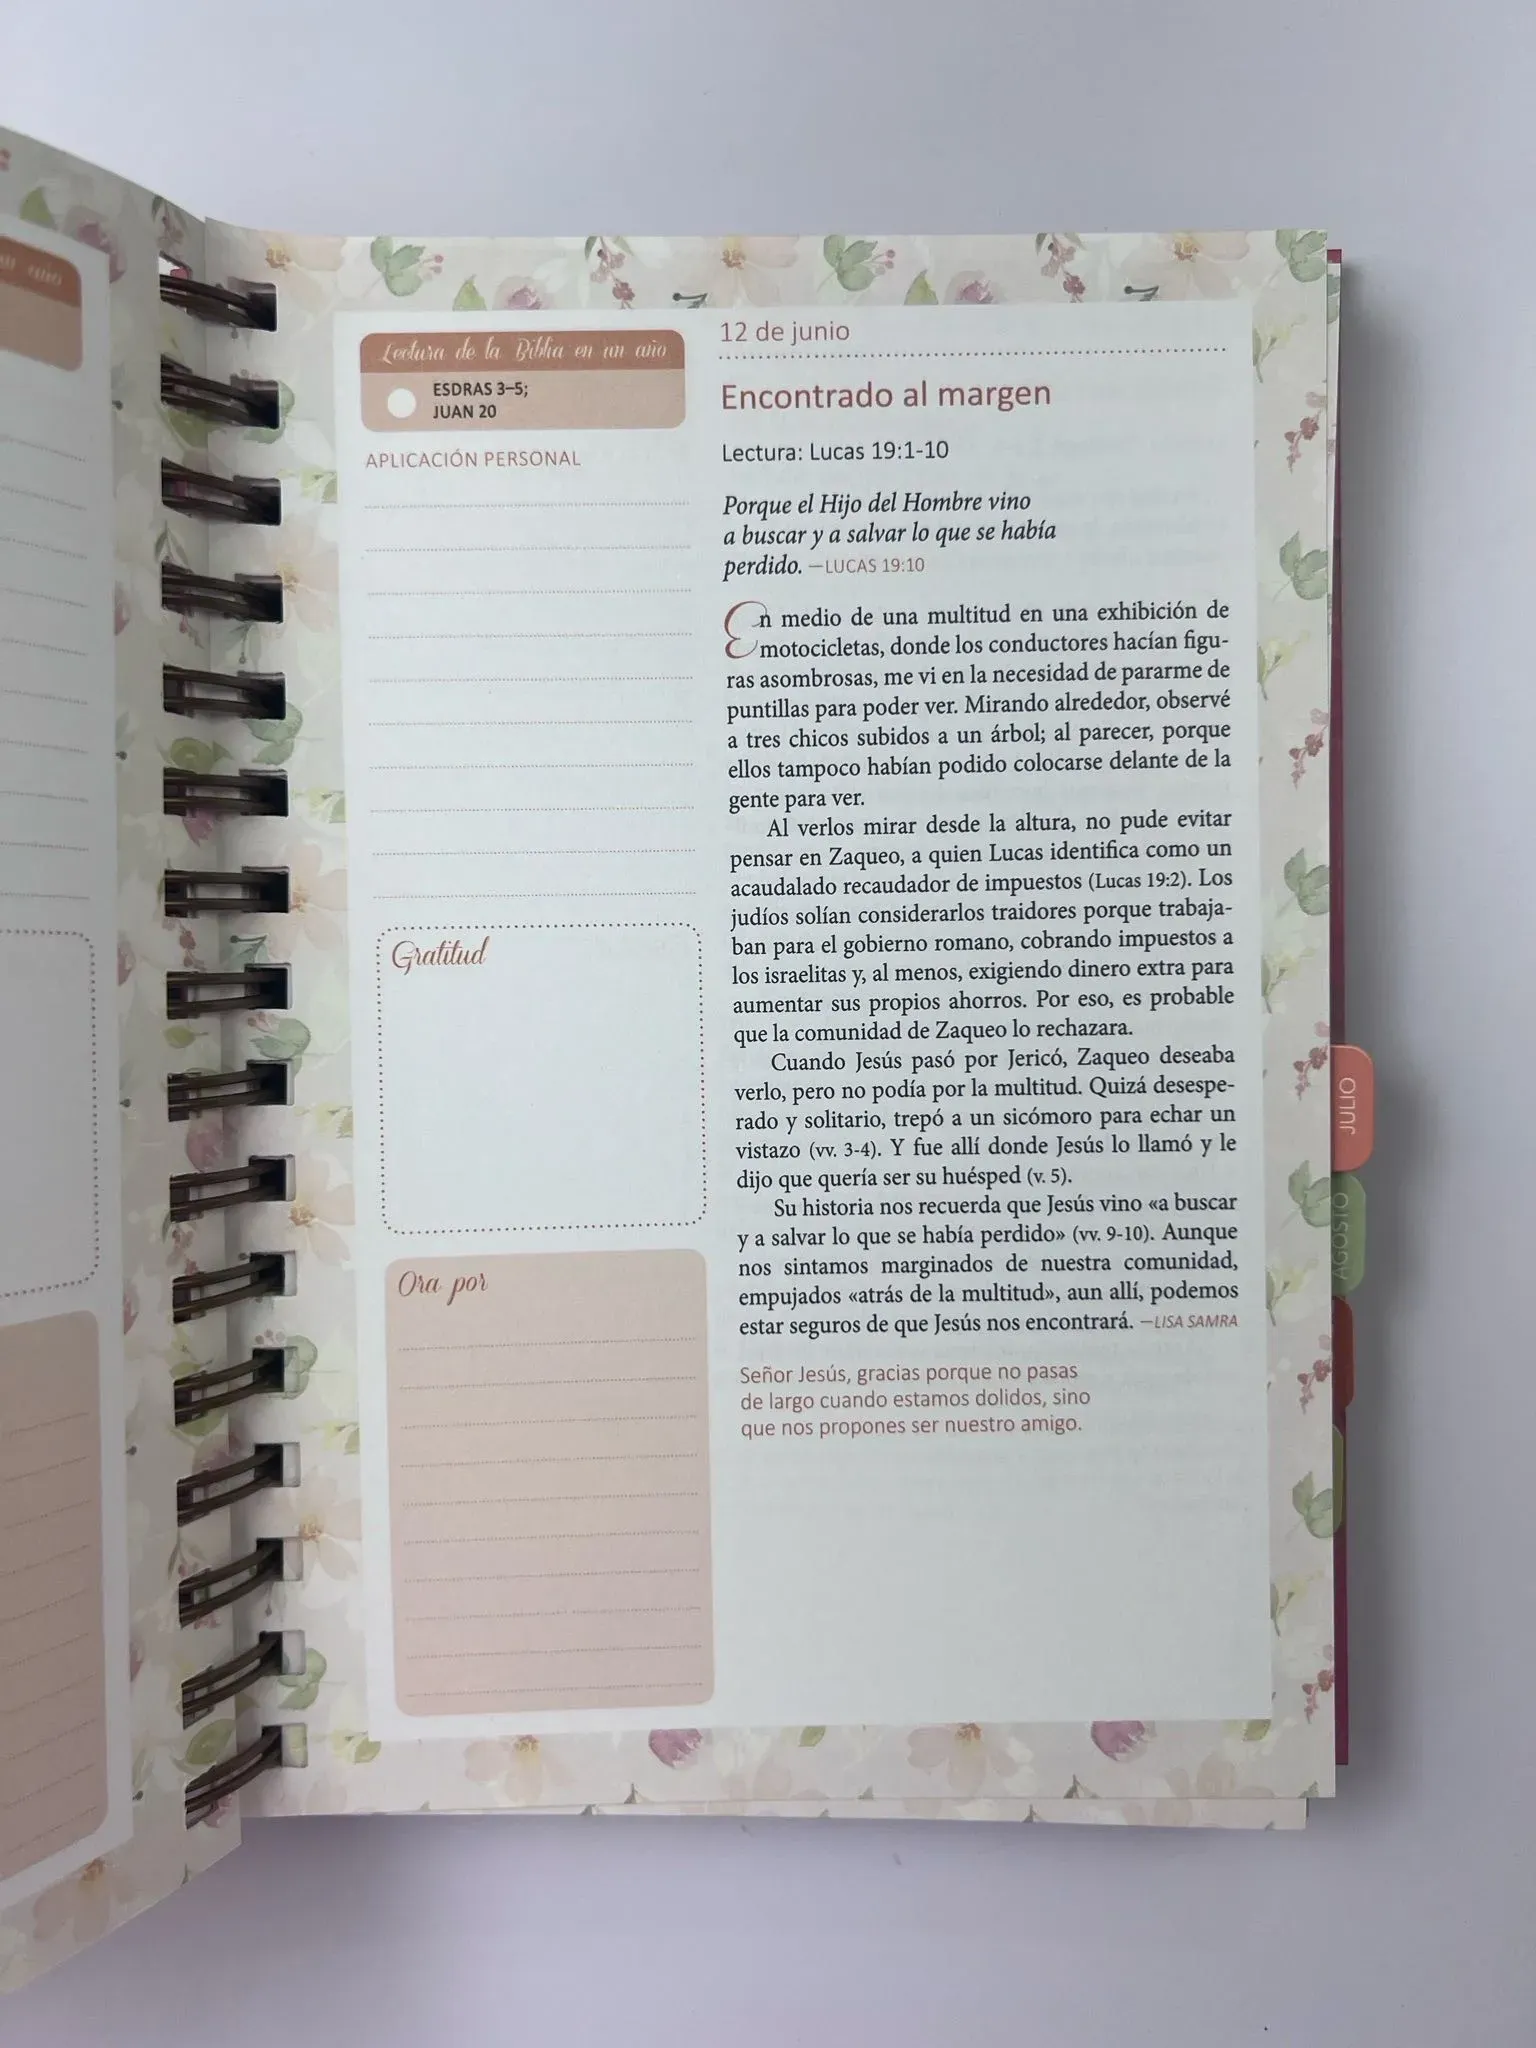 Lectura de la Biblia en un año
ESDRAS 3–5;
JUAN 20
APLICACIÓN PERSONAL
Gratitud
Ora por
12 de junio
Encontrado al margen
Lectura: Lucas 19:1-10
Porque el Hijo del Hombre vino
a buscar y a salvar lo que se había
perdido. —LUCAS 19:10
En medio de una multitud en una exhibición de
motocicletas, donde los conductores hacían figu-
ras asombrosas, me vi en la necesidad de pararme de
puntillas para poder ver. Mirando alrededor, observé
a tres chicos subidos a un árbol; al parecer, porque
ellos tampoco habían podido colocarse delante de la
gente para ver.
Al verlos mirar desde la altura, no pude evitar
pensar en Zaqueo, a quien Lucas identifica como un
acaudalado recaudador de impuestos (Lucas 19:2). Los
judíos solían considerarlos traidores porque trabaja-
ban para el gobierno romano, cobrando impuestos a
los israelitas y, al menos, exigiendo dinero extra para
aumentar sus propios ahorros. Por eso, es probable
que la comunidad de Zaqueo lo rechazara.
Cuando Jesús pasó por Jericó, Zaqueo deseaba
verlo, pero no podía por la multitud. Quizá desespe-
rado y solitario, trepó a un sicómoro para echar un
vistazo (vv. 3-4). Y fue allí donde Jesús lo llamó y le
dijo que quería ser su huésped (v. 5).
Su historia nos recuerda que Jesús vino «a buscar
y a salvar lo que se había perdido» (vv. 9-10). Aunque
nos sintamos marginados de nuestra comunidad,
empujados «atrás de la multitud», aun allí, podemos
estar seguros de que Jesús nos encontrará. —LISA SAMRA
Señor Jesús, gracias porque no pasas
de largo cuando estamos dolidos, sino
que nos propones ser nuestro amigo.
JULIO
AGOSTO
año